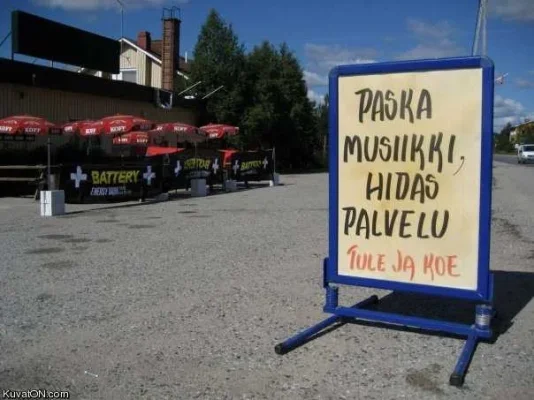 PASKA
MUSIIKKI,
HIDAS
PALVELU
TULE JA KOE
BATTERY
ENERGY DRINK
BATTERY
BATTERY
KOFF
KuvatON.com